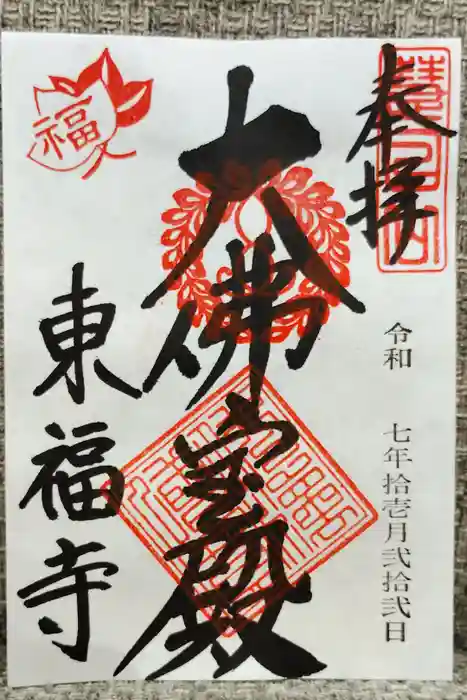 奉拝
令和 七年拾壱月弐拾弐日
大佛宝殿
東福寺
福